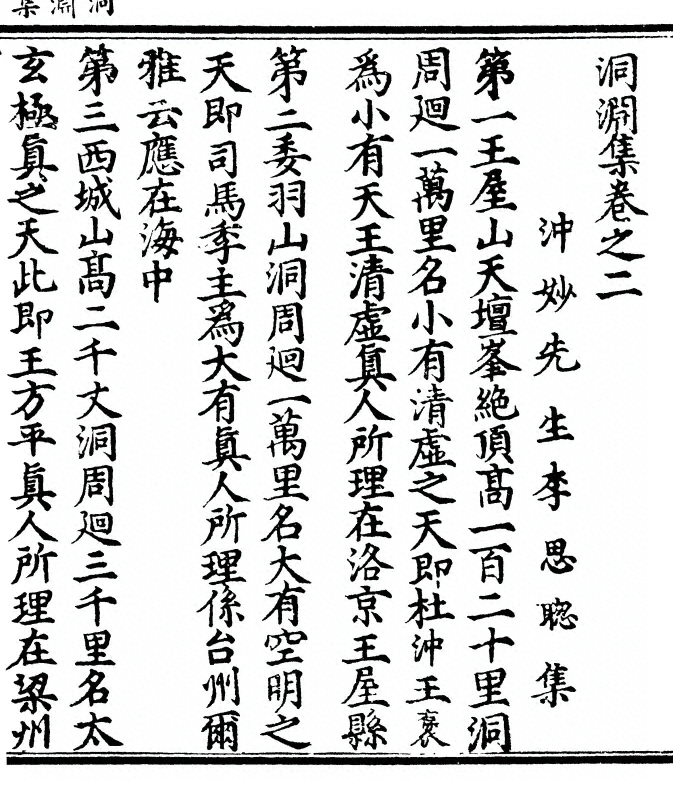 洞淵集
洞淵集卷之二
沖妙先生李思聦集
第一王屋山天壇峯絶頂髙一百二十里洞
周廻一萬里名小有清虛之天即杜沖王褒
爲小有天王清虛眞人所理在洛京王屋縣
第二委羽山洞周廻一萬里名大有空明之
天即司馬季主爲大有眞人所理係台州爾
雅云應在海中
第三西城山髙二千丈洞周廻三千里名太
玄極眞之天此即王方平眞人所理在梁州